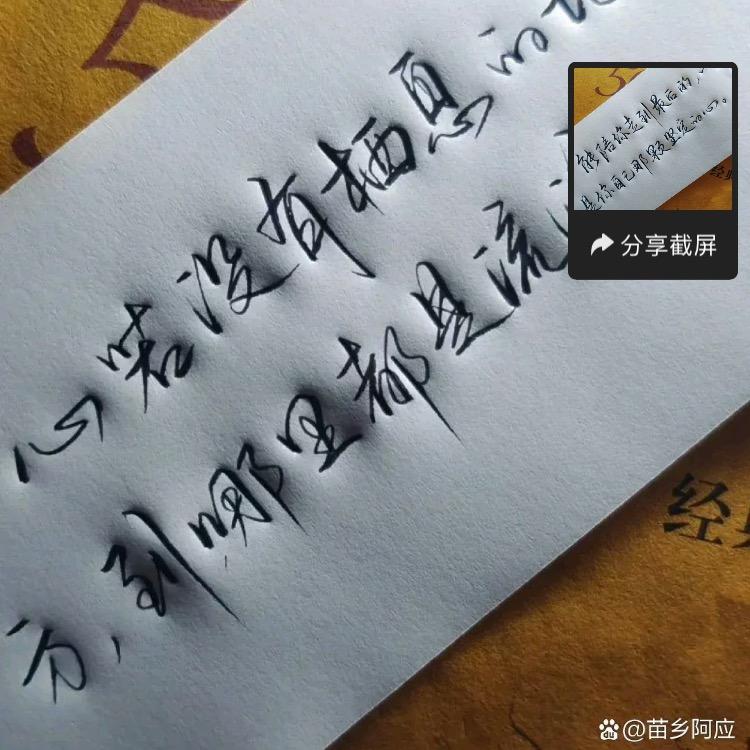 心若没有栖息的地
方，到哪里都是流
能陪你走到最后的，
是你自己那颗坚定的心。
分享截屏
经典
@苗乡阿应